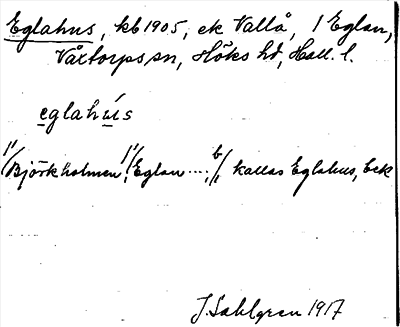 Eglahus, kb 1905, ek Vallå, 1 Eglan,
Våxtorps sn, Höks hd, Hall. l.
eglahús
1) Björkholmen 1) Eglan .... b) kallas Eglahus, bek
J. Sahlgren 1917